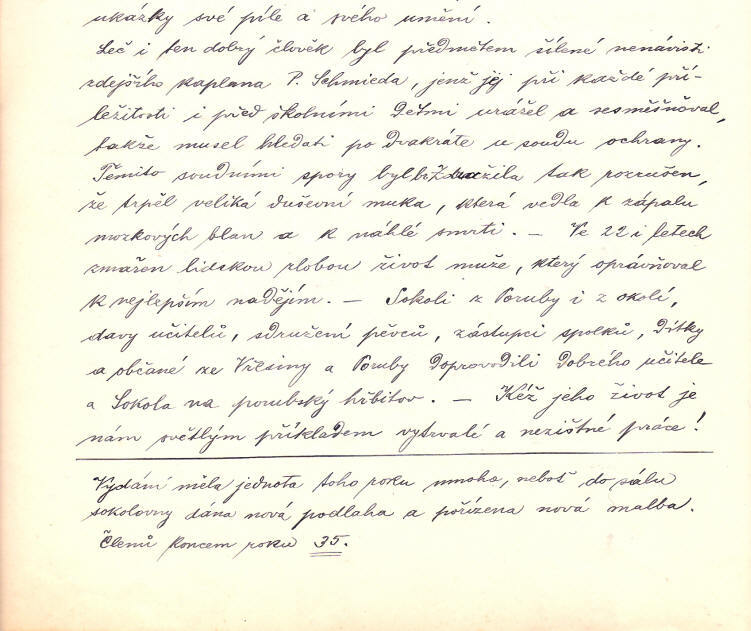 ukázky své píle a svého umění.
Leč i ten dobrý člověk byl předmětem šílené nenávisti
zdejšího kaplana P. Schmieda, jenž jej při každé pří-
ležitosti i před školními dětmi urážel a zesměšňoval,
takže musel hledati po dvakráte u soudu ochrany.
Těmito soudními spory byl br. žila tak rozrušen,
že trpěl veliká duševní muka, která vedla k zápalu
mozkových blan a k náhlé smrti. — Ve 22 i letech
zmařen lidskou zlobou život muže, který oprávňoval
k nejlepším nadějím. — Sokoli z Poruby i z okolí,
davy učitelů, sdružení pěvců, zástupci spolků, dítky
a občané ze Vřesiny a Poruby doprovodili dobrého učitele
a Sokola na porubský hřbitov. — Kéž jeho život je
nám světlým příkladem vytrvalé a nezištné práce!
Vydání měla jednota toho roku mnoho, neboť do sálu
sokolovny dána nová podlaha a pořízena nová malba.
Členů koncem roku 35.